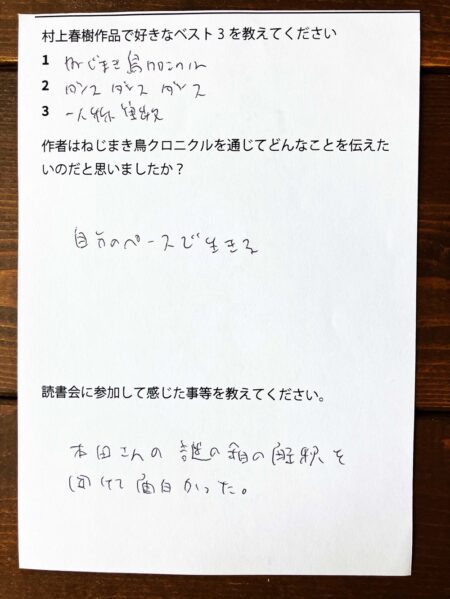 村上春樹作品で好きなベスト3を教えてください
1 ねじまき鳥クロニクル
2 ダンス ダンス ダンス
3 一人称単数
作者はねじまき鳥クロニクルを通じてどんなことを伝えた
いのだと思いましたか?
自分のペースで生きる
読書会に参加して感じた事等を教えてください。
本田さんの謎の箱の解釈を
聞けて面白かった。